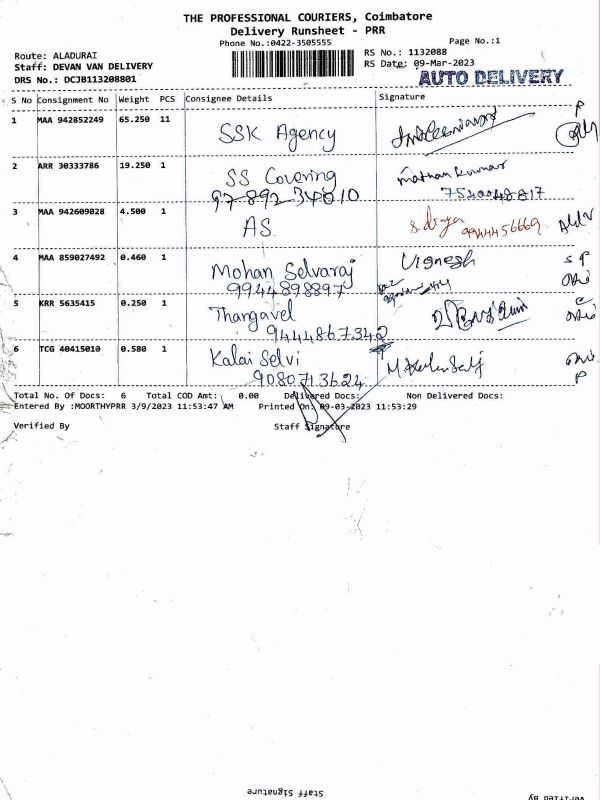 THE PROFESSIONAL COURIERS, Coimbatore
Delivery Runsheet - PRR
Phone No.:0422-3505555 Page No.:1
Route: ALADURAI RS No.: 1132088
Staff: DEVAN VAN DELIVERY RS Date: 09-Mar-2023
DRS No.: DCJB113208801 AUTO DELIVERY
S No Consignment No Weight PCS Consignee Details Signature
1 MAA 942852249 65.250 11 SSK Agency
2 ARR 30333786 19.250 1 SS Covering Mathan Kumar
7540048817
3 MAA 942609028 4.500 1 AS. S. divya 9944456669
4 MAA 859027492 0.460 1 Mohan Selvaraj Vignesh
9944898897
5 KRR 5635415 0.250 1 Thangavel
9444867342
6 TCG 40415010 0.580 1 Kalai Selvi
9080713624
Total No. Of Docs: 6 Total COD Amt: 0.00 Delivered Docs: Non Delivered Docs:
Entered By :MOORTHYPRR 3/9/2023 11:53:47 AM Printed On: 09-03-2023 11:53:29
Verified By Staff Signature
Staff Signature Verified By